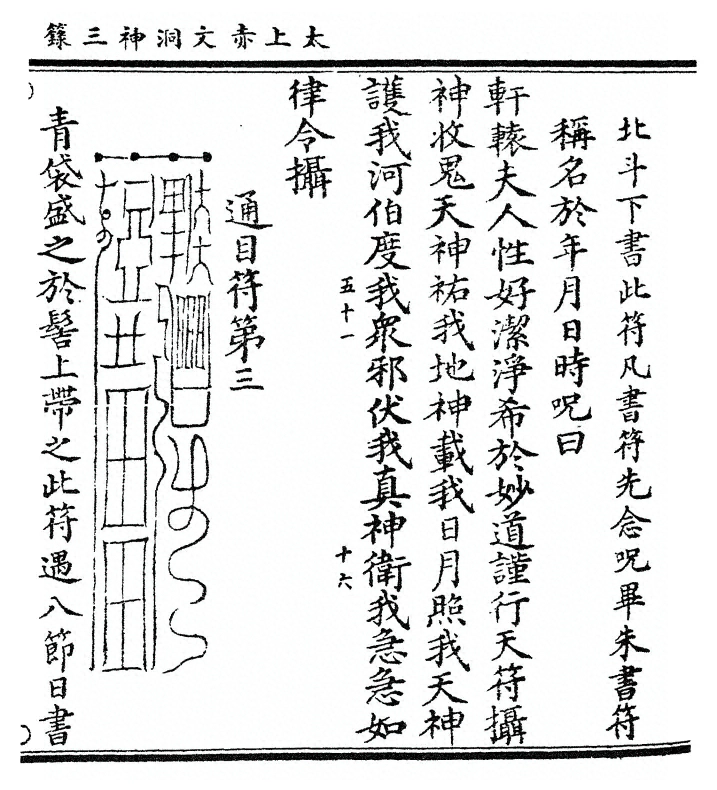 太上赤文洞神三籙
北斗下書此符凡書符先念呪畢朱書符
稱名於年月日時呪曰
軒轅夫人性好潔淨希於妙道謹行天符攝
神收鬼天神祐我地神載我日月照我天神
護我河伯度我衆邪伏我真神衛我急急如
五十一
十六
律令攝
通目符第三
青袋盛之於髻上帶之此符遇八節日書